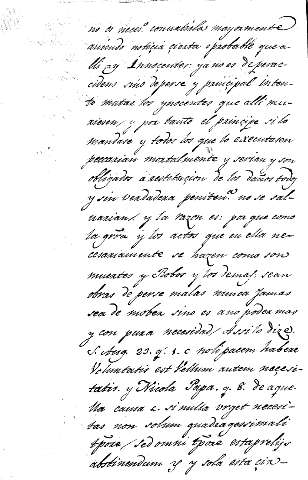 no es neces.º convatirla mayormente
aviendo noticia cierta o probable que a
lli ay Innocentes: ya no es de per ac
cidens sino de per se y principal inten
to matar los ynocentes que alli mu
riesen, y por tanto el principe si lo
mandase y todos los que lo executasen
peccarian mortalmente y serian y son
obligados a restitucion de los daños todos
y sin verdadera peniten.ª no se sal
varian, y la razon es: por que como
la grra y los actos que en ella ne
cesariamente se hazen como son
muertes y Robos y los demas, sean
obras de per se malas nunca jamas
sea de mober sino es a no poder mas
y con pura necesidad, Assi lo dize
S. Aug. 23. q. 1. c noli pacem habere
Voluntatis est Vellum autem necesi
tatis. y Nicola Papa. q. 8. de aque
lla causa c. si nulla urget necesi
tas non solum quadragessimali
tpore, sed omni tpore est a prelijs
abstinendum y y sola esta cau-